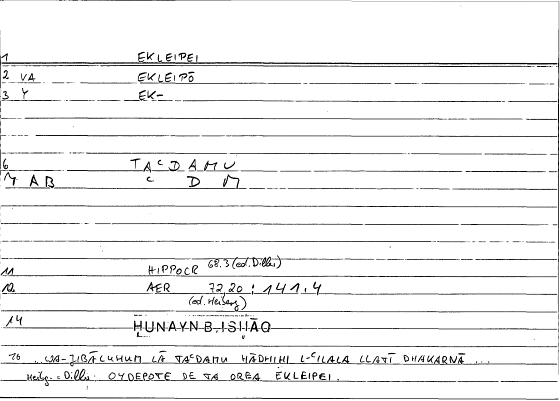 1 EKLEIPEI
2 VA EKLEIPŌ
3 Y EK-
6 TAᶜDAMU
7 AB ᶜ D M
11 HIPPOCR 68.3 (ed. Diller)
12 AER 72,20 : 141.4
(ed. Heiberg)
14 HUNAYN B. ISḤĀQ
16 ... WA-JIBĀLUHUM LĀ TAᶜDAMU HĀDHIHI L-ᶜILALA LLATĪ DHAKARNĀ ...
Heibg. = Diller: OYDEPOTE DE TA OREA EKLEIPEI.